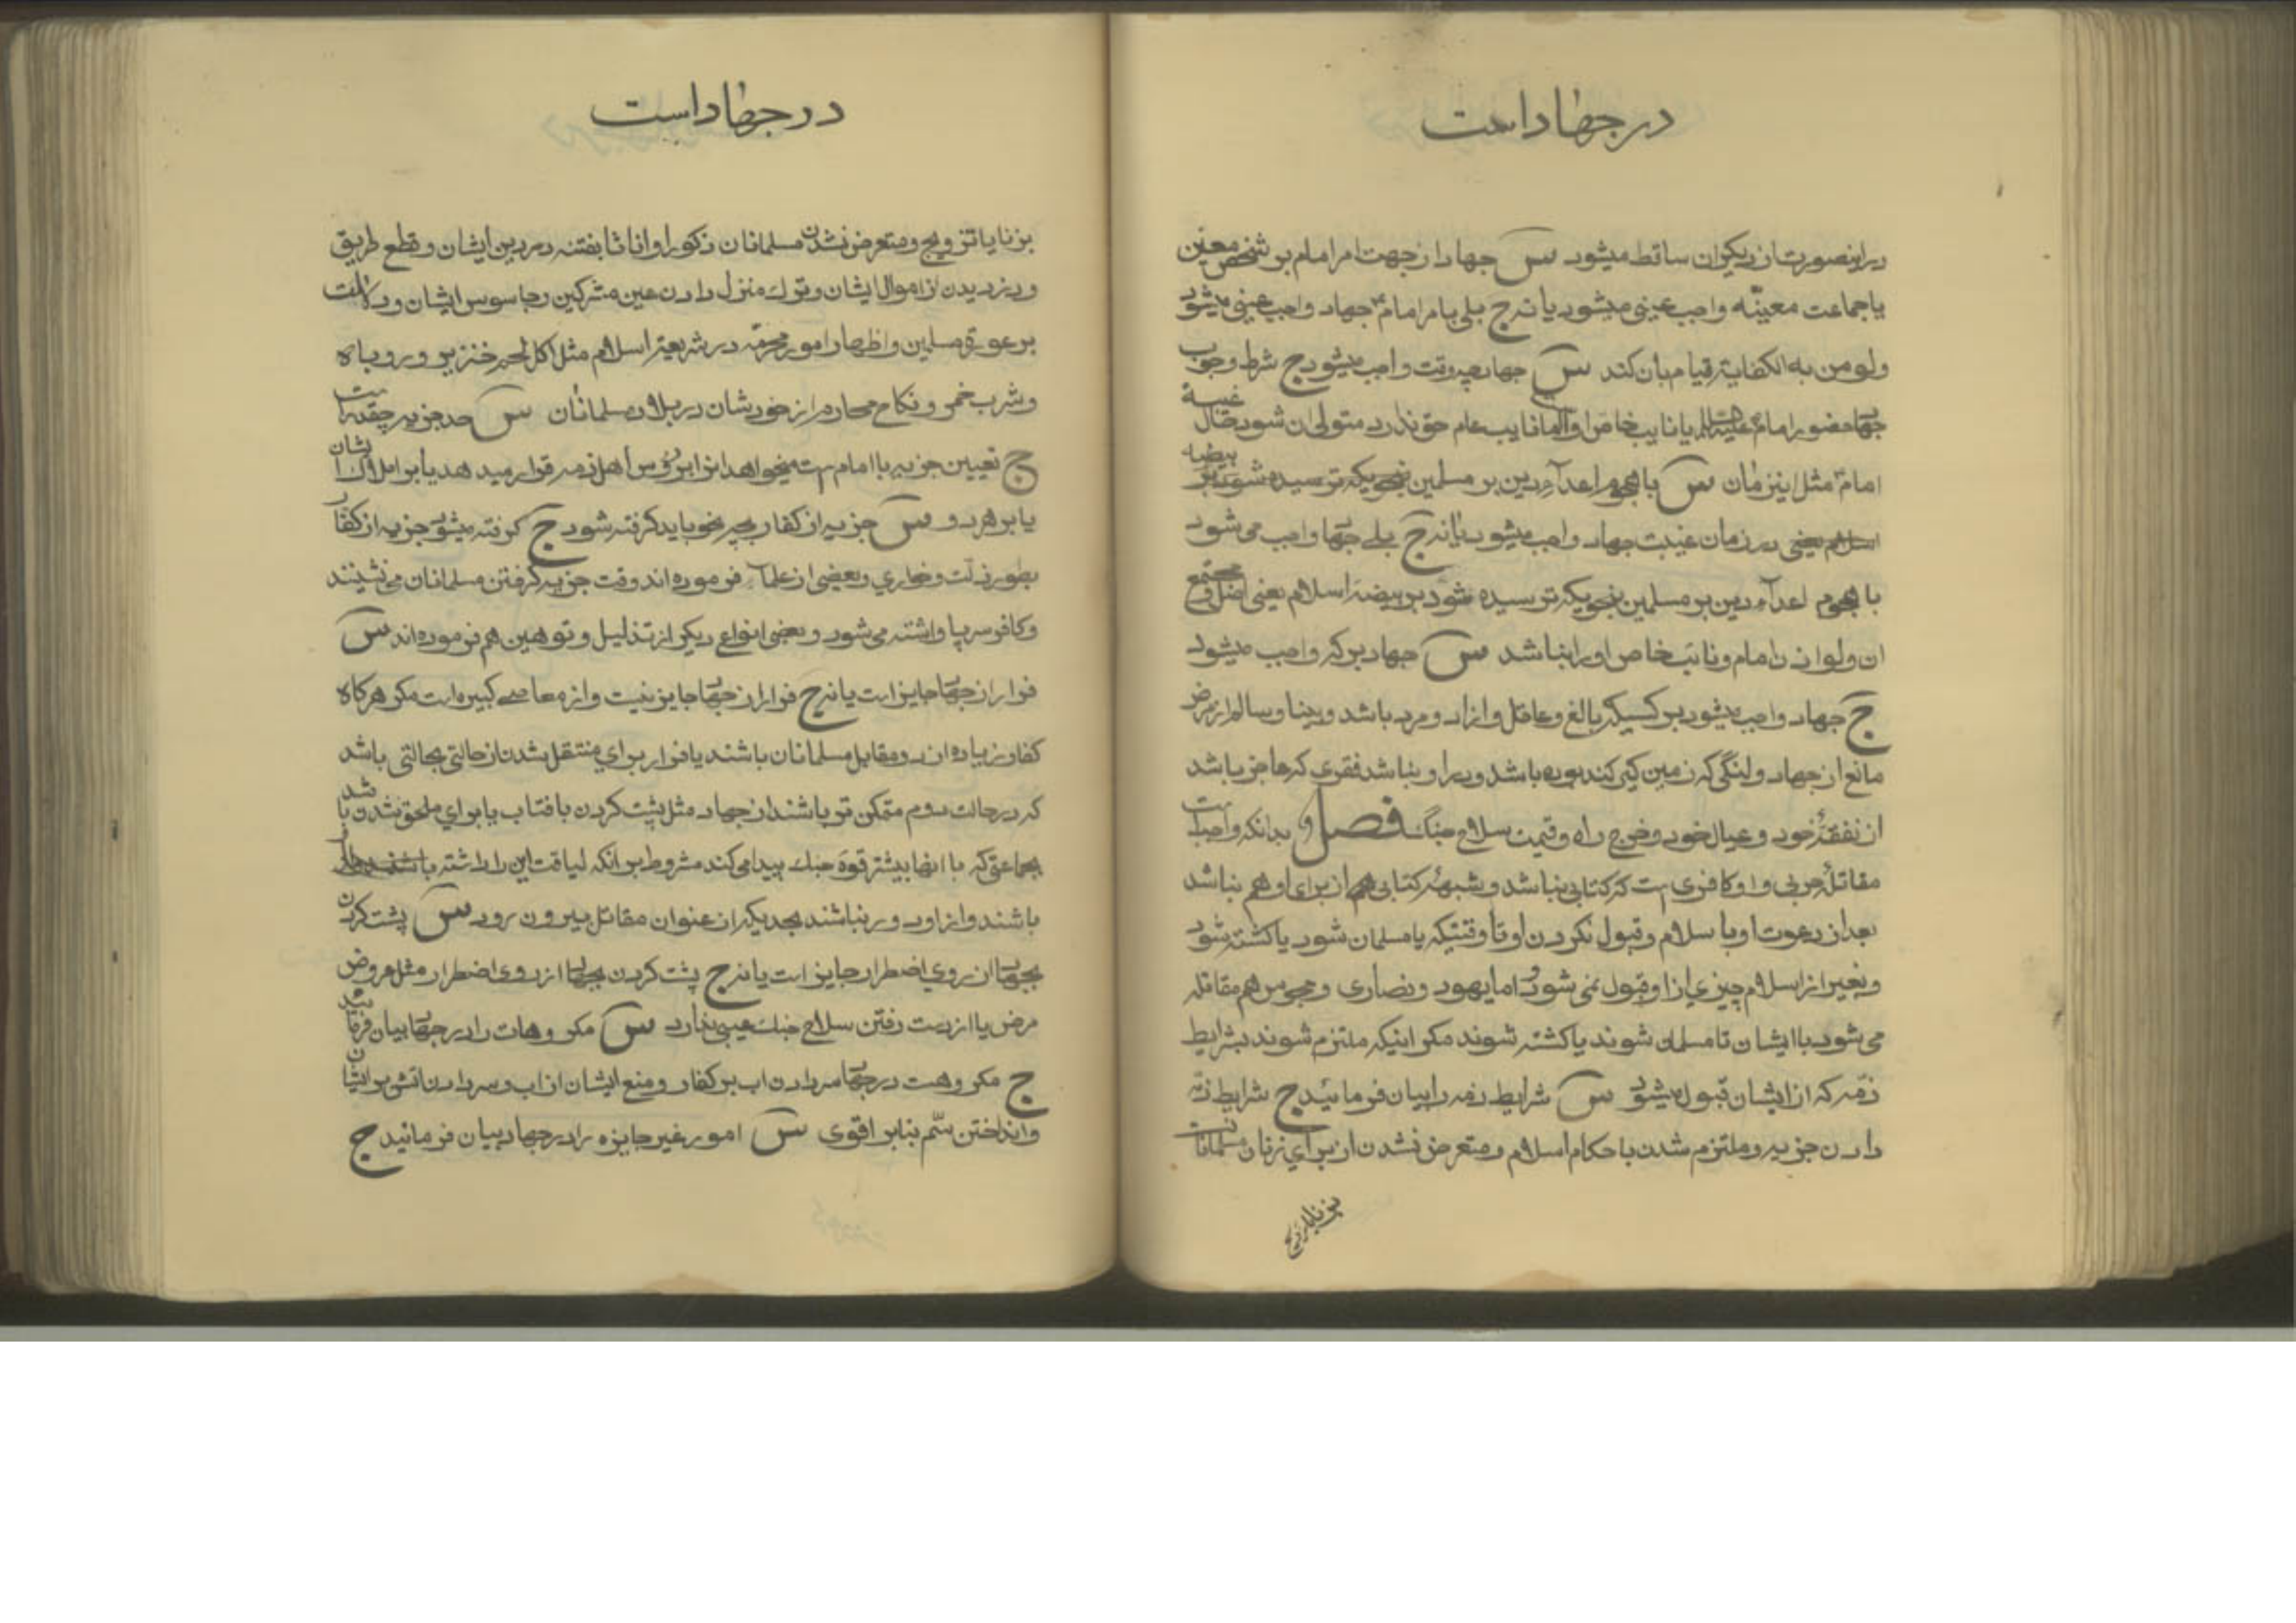 در جهاد است
در اینصورت از دیگران ساقط میشود س جهاد از جهت امر امام بر شخص معین
یا جماعت معینّه واجب عینی میشود یا نه ج بلی بامر امام ع جهاد واجب عینی میشود
ولو من به الکفایة قیام بان کند س جهاد چه وقت واجب میشود ج شرط وجوب
جهاد حضور امام علیه السلام یا نایب خاص او اما نایب عام حق ندارد متولی ان شود حال غیبة
امام ع مثل این زمان س با هجوم اعدآء دین بر مسلمین بنحویکه ترسیده شود بر بیضه
اسلام یعنی در زمان غیبت جهاد واجب میشود یا نه ج بلی جهاد واجب می شود
با هجوم اعدآء دین بر مسلمین بنحویکه ترسیده شود بر بیضۀ اسلام یعنی اصل و مجتمع
ان ولو اذن امام و نائب خاص او را نباشد س جهاد بر که واجب میشود
ج جهاد واجب میشود بر کسیکه بالغ و عاقل و ازاد و مرد باشد و بینا و سالم از مرض
مانع از جهاد و لنگی که زمین گیر کند بوده باشد و در او نباشد فقری که عاجز باشد
از نفقۀ خود و عیال خود و خرج راه و قیمت سلاح جنگ فصل و بدانکه واجبست
مقاتلۀ حربی و او کافری ست که کتابی نباشد و شبهۀ کتابی هم از برای او هم نباشد
بعد از دعوت او با سلام و قبول نکردن او تا وقتیکه یا مسلمان شود یا کشته شود
و بغیر از اسلام چیزی از او قبول نمی شود و اما یهود و نصاری و مجوس هم مقاتله
می شود با ایشان تا مسلمان شوند یا کشته شوند مکر اینکه ملتزم شوند بشرایط
ذمّه که از ایشان قبول میشود س شرایط ذمه را بیان فرمائید ج شرایط ذمّه
دادن جزیه و ملتزم شدن با حکام اسلام و متعرض نشدن از برای زنان مسلمانان
بزنا یا تزویج
در جهاد است
بزنا یا تزویج و متعرض نشدن مسلمانان ذکورا و اناثا بفتنه در دین ایشان و قطع طریق
و دزدیدن از اموال ایشان و ترك منزل دادن عین مشرکین و جاسوس ایشان و دلالت
بر عورة مسلمین و اظهار امور محرّمه در شریعة اسلام مثل اکل لحم خنزیر و روباه
و شرب خمر و نکاح محارم از خودشان در بلاد مسلمانان س حد جزیه چقدر است
ج تعیین جزیه با امام ست میخواهد انرا بر رؤس اهل ذمه قرار میدهد یا بر املاک ایشان
یا بر هر دو س جزیه از کفار بچه نحو باید کرفته شود ج کرفته میشود جزیه از کفار
بطور ذلت و خاری و بعضی از علمآء فرموده اند وقت جزیه کرفتن مسلمانان می نشینند
و کافر سر پا واشته می شود و بعضی انواع دیکر از تذلیل و توهین هم فرموده اند س
فرار از جهاد جایز است یا نه ج فرار از جهاد جایز نیست و از معاصی کبیره است مکر هرکاه
کفار زیاده از دو مقابل مسلمانان باشند یا فرار برای منتقل شدن از حالتی بحالتی باشد
که در حالت دوم متمکن تر باشند از جهاد مثل پشت کردن بافتاب یا برای ملحق شدن باشد
بجماعتی که با انها بیشتر قوة جنك پیدا می کند مشروط بر انکه لیاقت این را داشته باشند
باشند و از او دور نباشند بحدیکه از عنوان مقاتل بیرون رود س پشت کردن
بجهاد از روی اضطرار جایز است یا نه ج پشت کردن بجهاد از روی اضطرار مثل عروض
مرض یا از دست رفتن سلاح جنك عیبی ندارد س مکروهات را در جهاد بیان فرمائید
ج مکروهست در جهاد سر دادن اب بر کفار و منع ایشان از اب و سر دادن اتش بر ایشان
و انداختن سّم بنابر اقوی س امور غیر جایزه را در جهاد بیان فرمائید ج